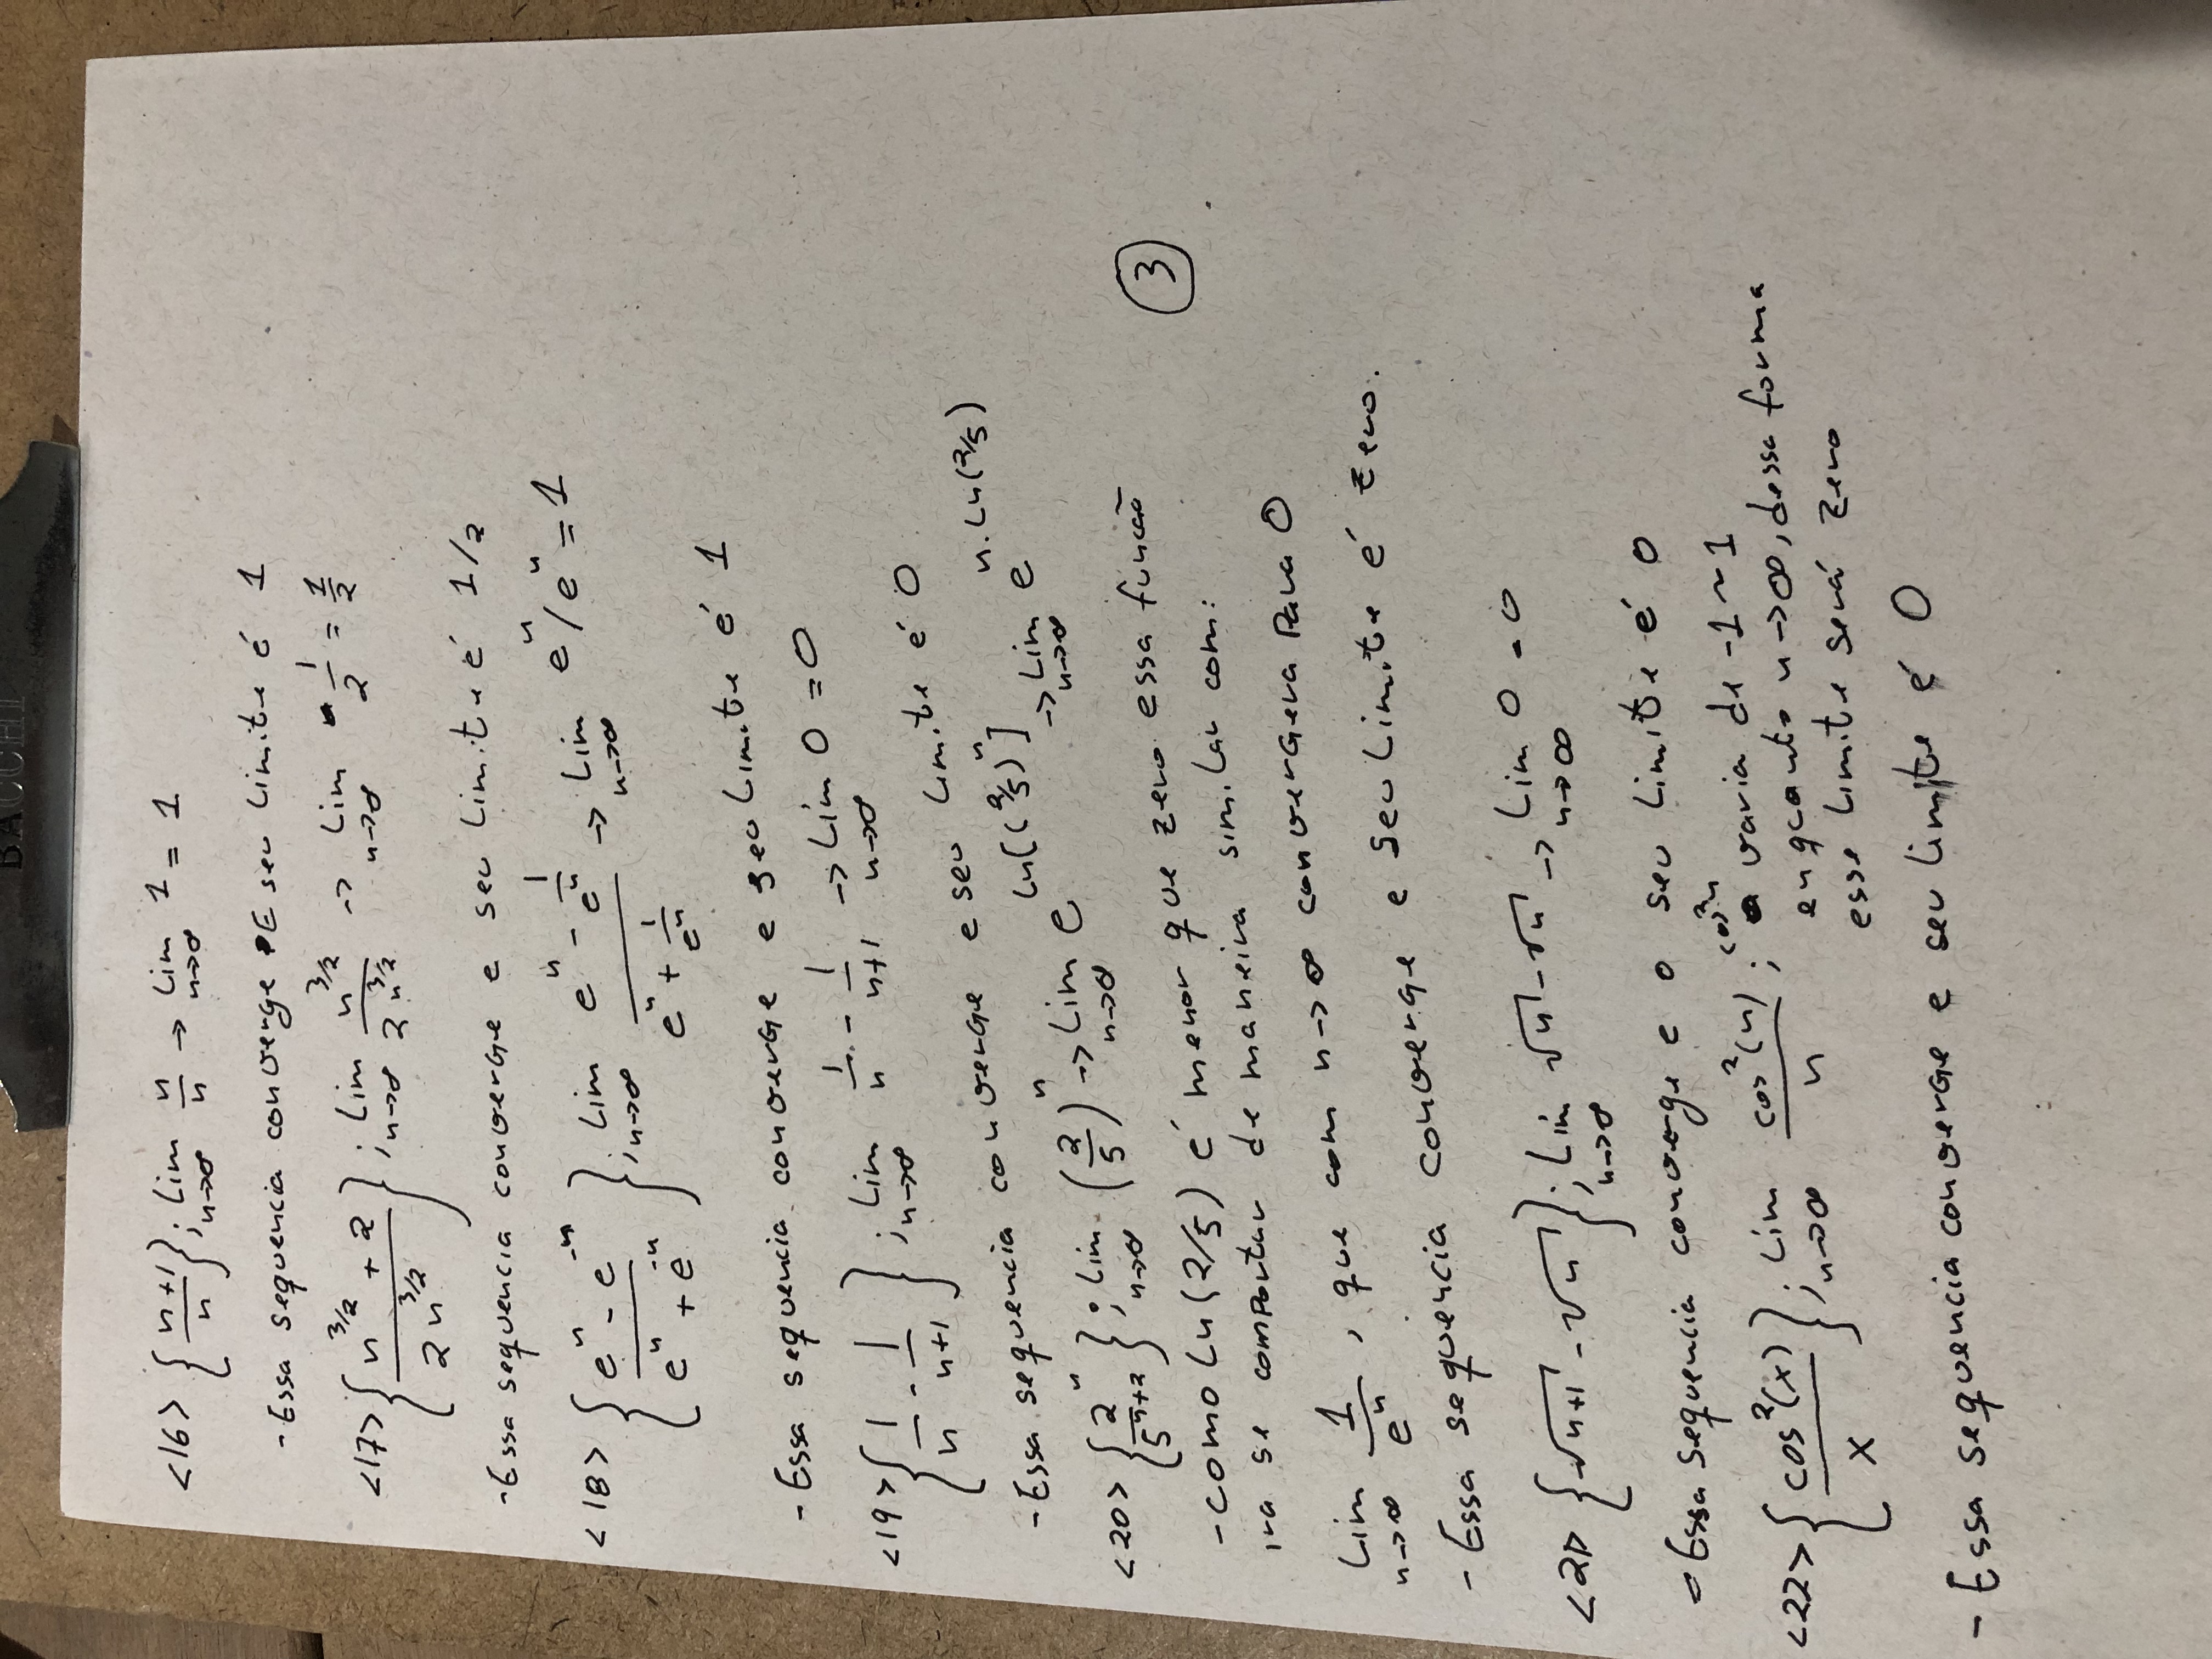 BACCHI
<16> { (n+1)/n } ; Lim n→∞ n/n → Lim n→∞ 1 = 1
- Essa sequencia converge E seu Limite é 1
<17> { (n^3/2 + 2)/(2n^3/2) } ; Lim n→∞ n^3/2/(2n^3/2) → Lim n→∞ 1/2 = 1/2
- Essa sequencia converge e seu Limite é 1/2
<18> { (e^n - e^-n)/(e^n + e^-n) } ; Lim n→∞ (e^n - 1/e^n)/(e^n + 1/e^n) → Lim n→∞ e^n/e^n = 1
- Essa sequencia converge e seu Limite é 1
<19> { 1/n - 1/(n+1) } ; Lim n→∞ 1/n - 1/(n+1) → Lim n→∞ 0 = 0
- Essa sequencia converge e seu Limite é 0
<20> { 2^n/5^(n+2) } ; Lim n→∞ (2/5)^n → Lim n→∞ e^(Ln[(2/5)^n]) → Lim n→∞ e^(n.Ln(2/5))
- como Ln(2/5) é menor que zero essa funcão
ira se comportar de maneira similar com:
Lim n→∞ 1/e^n , que com n→∞ convergera para 0
③
- Essa sequencia converge e seu Limite é zero.
<21> { √(n+1) - √n } ; Lim n→∞ √n - √n → Lim n→∞ 0 = 0
- Essa sequencia converge e o seu Limite é 0
<22> { cos²(x)/x } ; Lim n→∞ cos²(n)/n ; cos²n varia de -1 ~ 1
enqcanto n→∞, dessa forma
esse Limite será zero
- Essa sequencia converge e seu Limite é 0